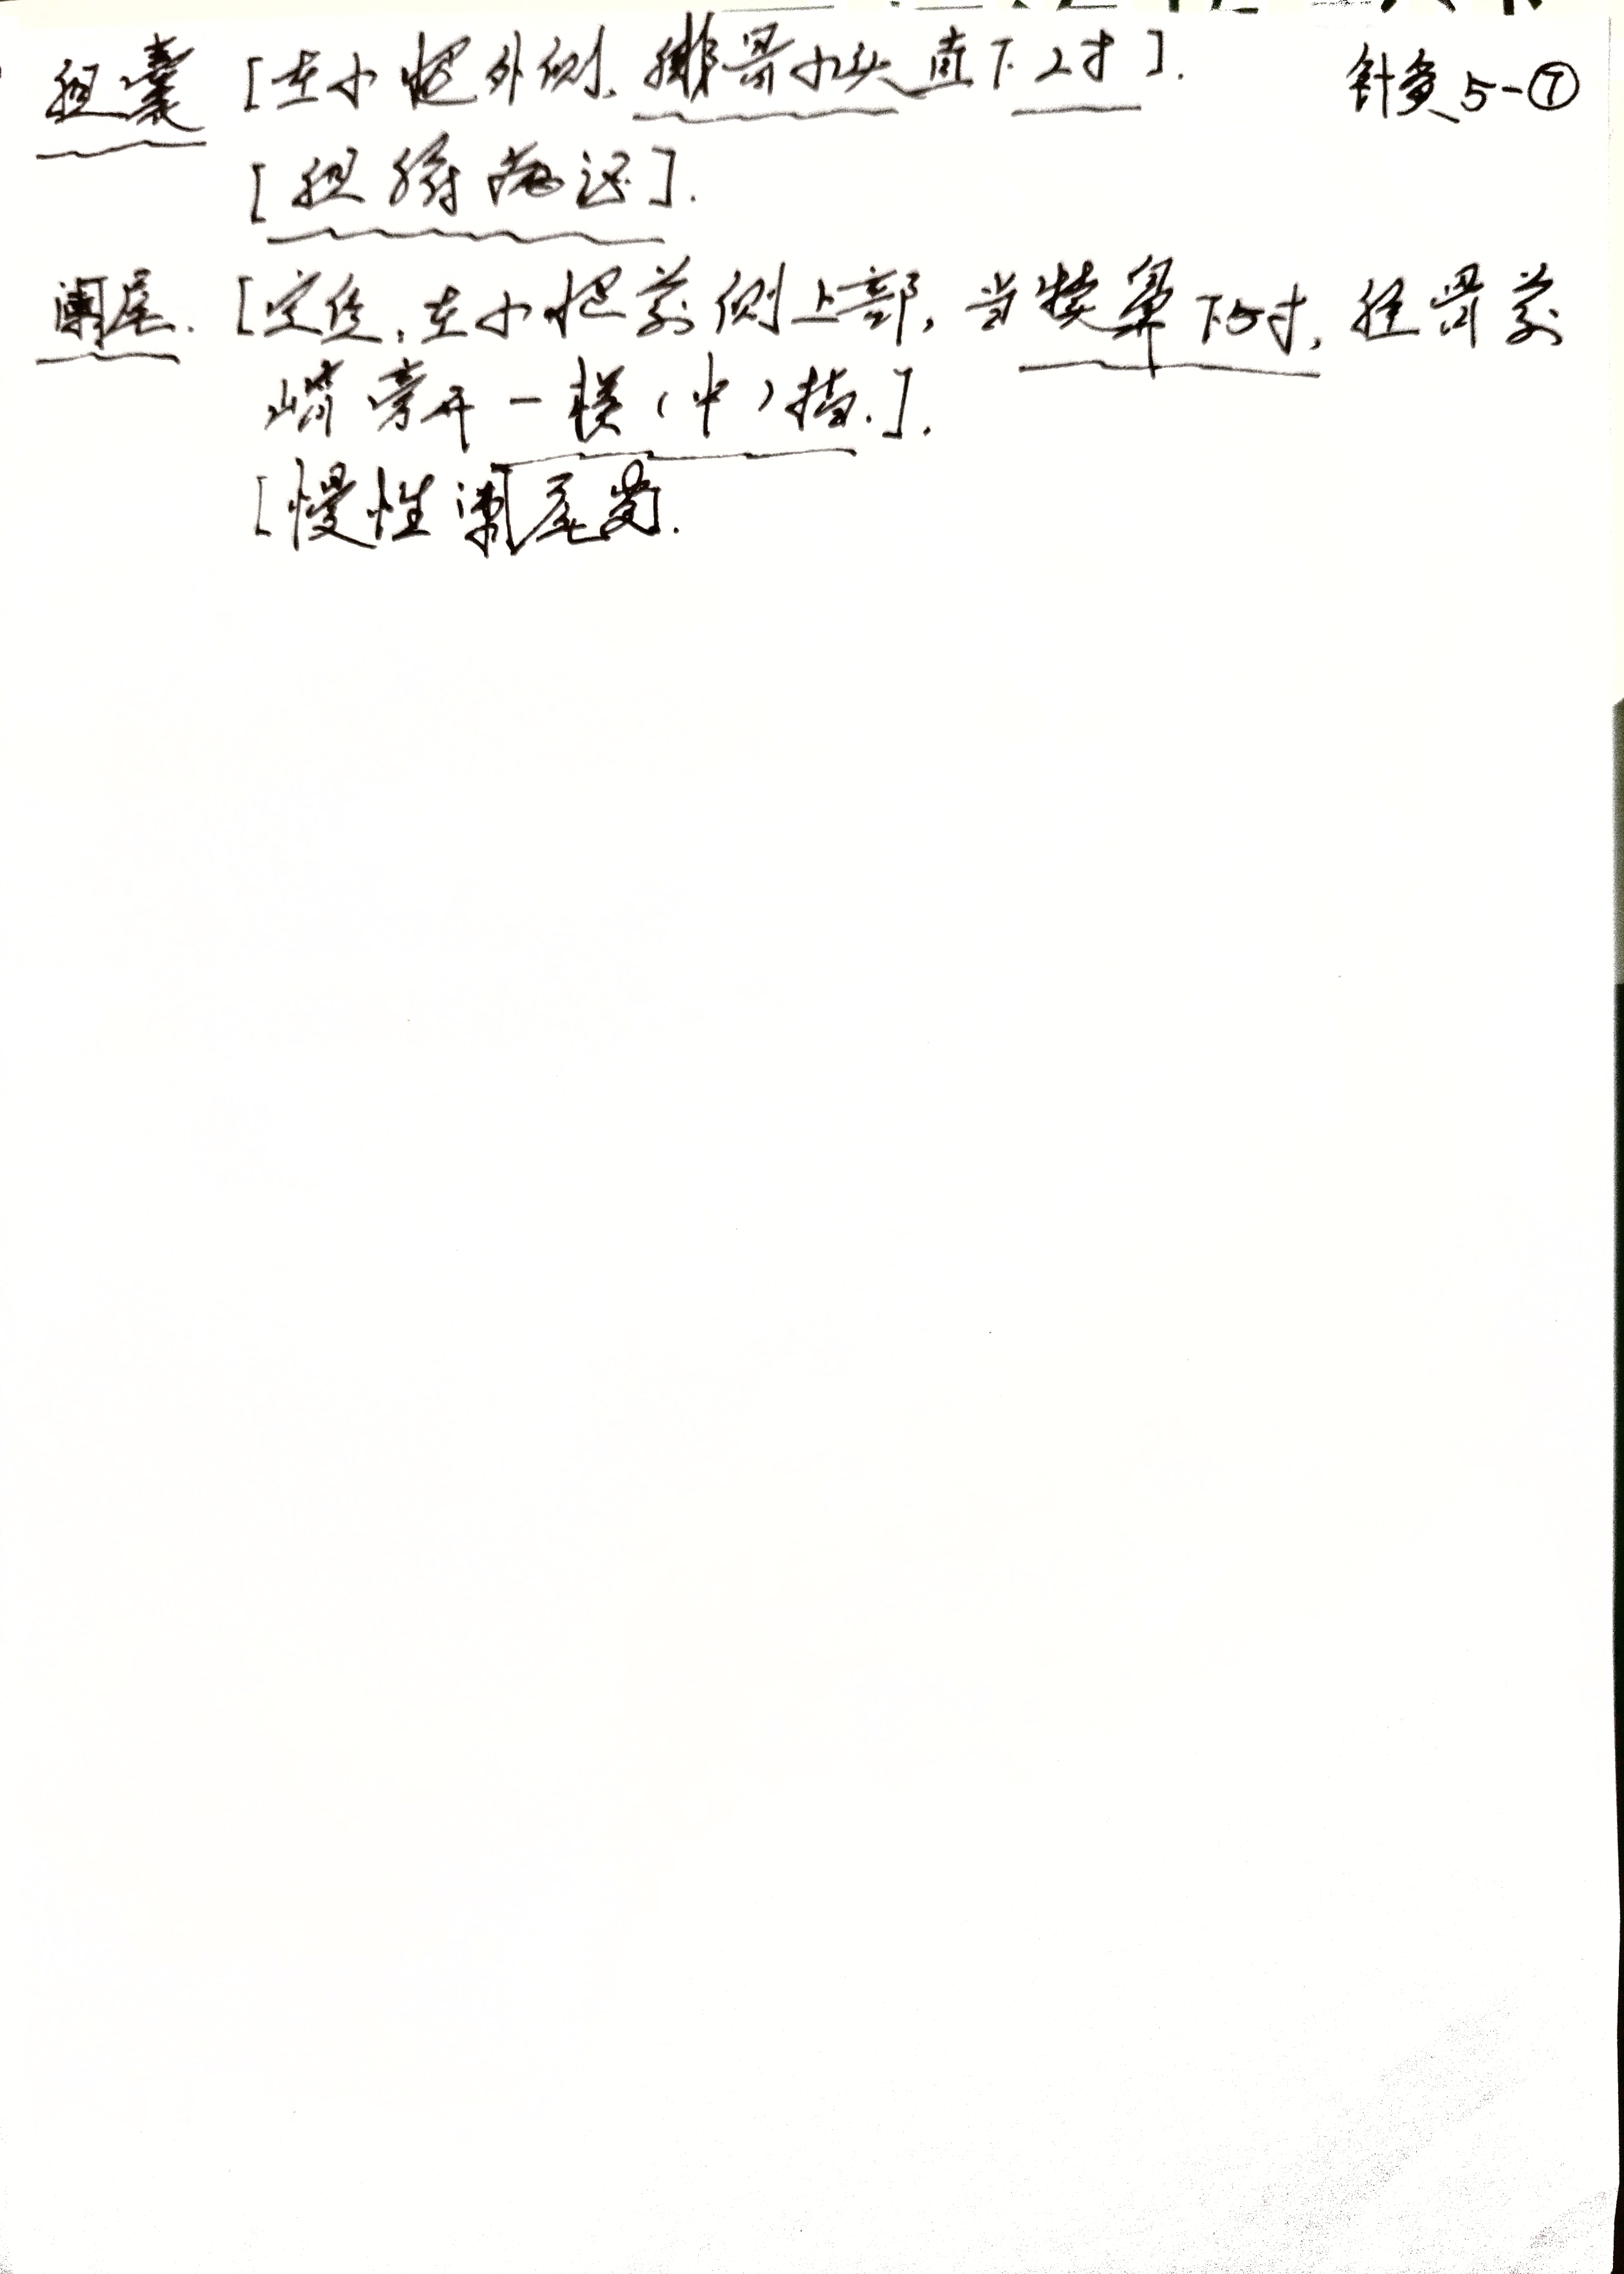 胆囊 [在小腿外侧,腓骨小头直下2寸]. 针灸5-⑦
[胆腑病证].
阑尾. [定位:在小腿前侧上部,当犊鼻下5寸,胫骨前
嵴旁开一横(中)指.].
[慢性阑尾炎.